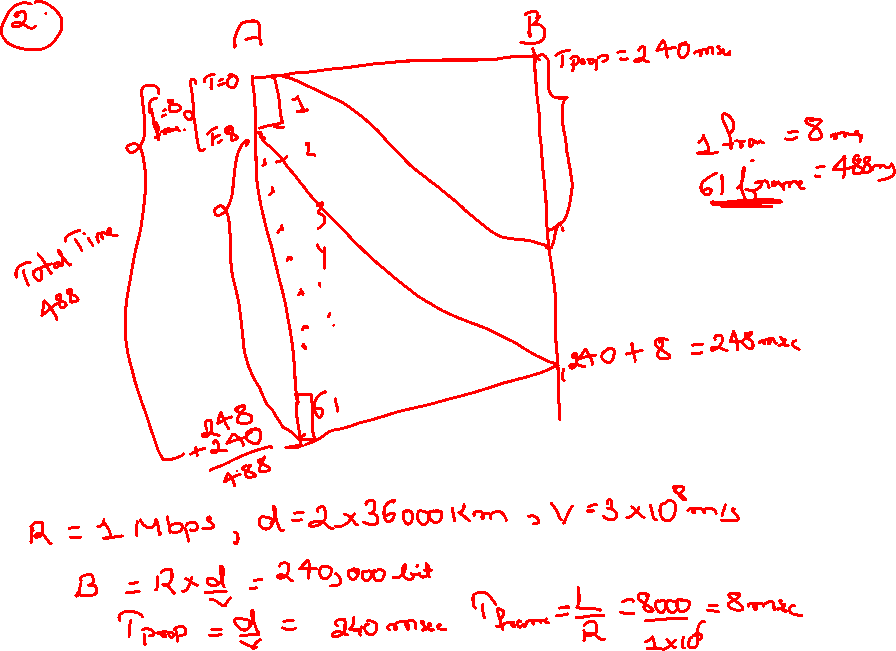 2.
A
B
T=0
Tprop = 240 msec
1
T=8
2
1 fram = 8 ms
61 frame = 488ms
3
4
Total Time
488
240 + 8 = 248 msec
61
248
+240
488
R = 1 Mbps, d = 2×36000 Km, V = 3×10⁸ m/s
B = R × d/v = 240,000 bit
Tprop = d/v = 240 msec
Tframe = L/R = 8000/1×10⁶ = 8 msec